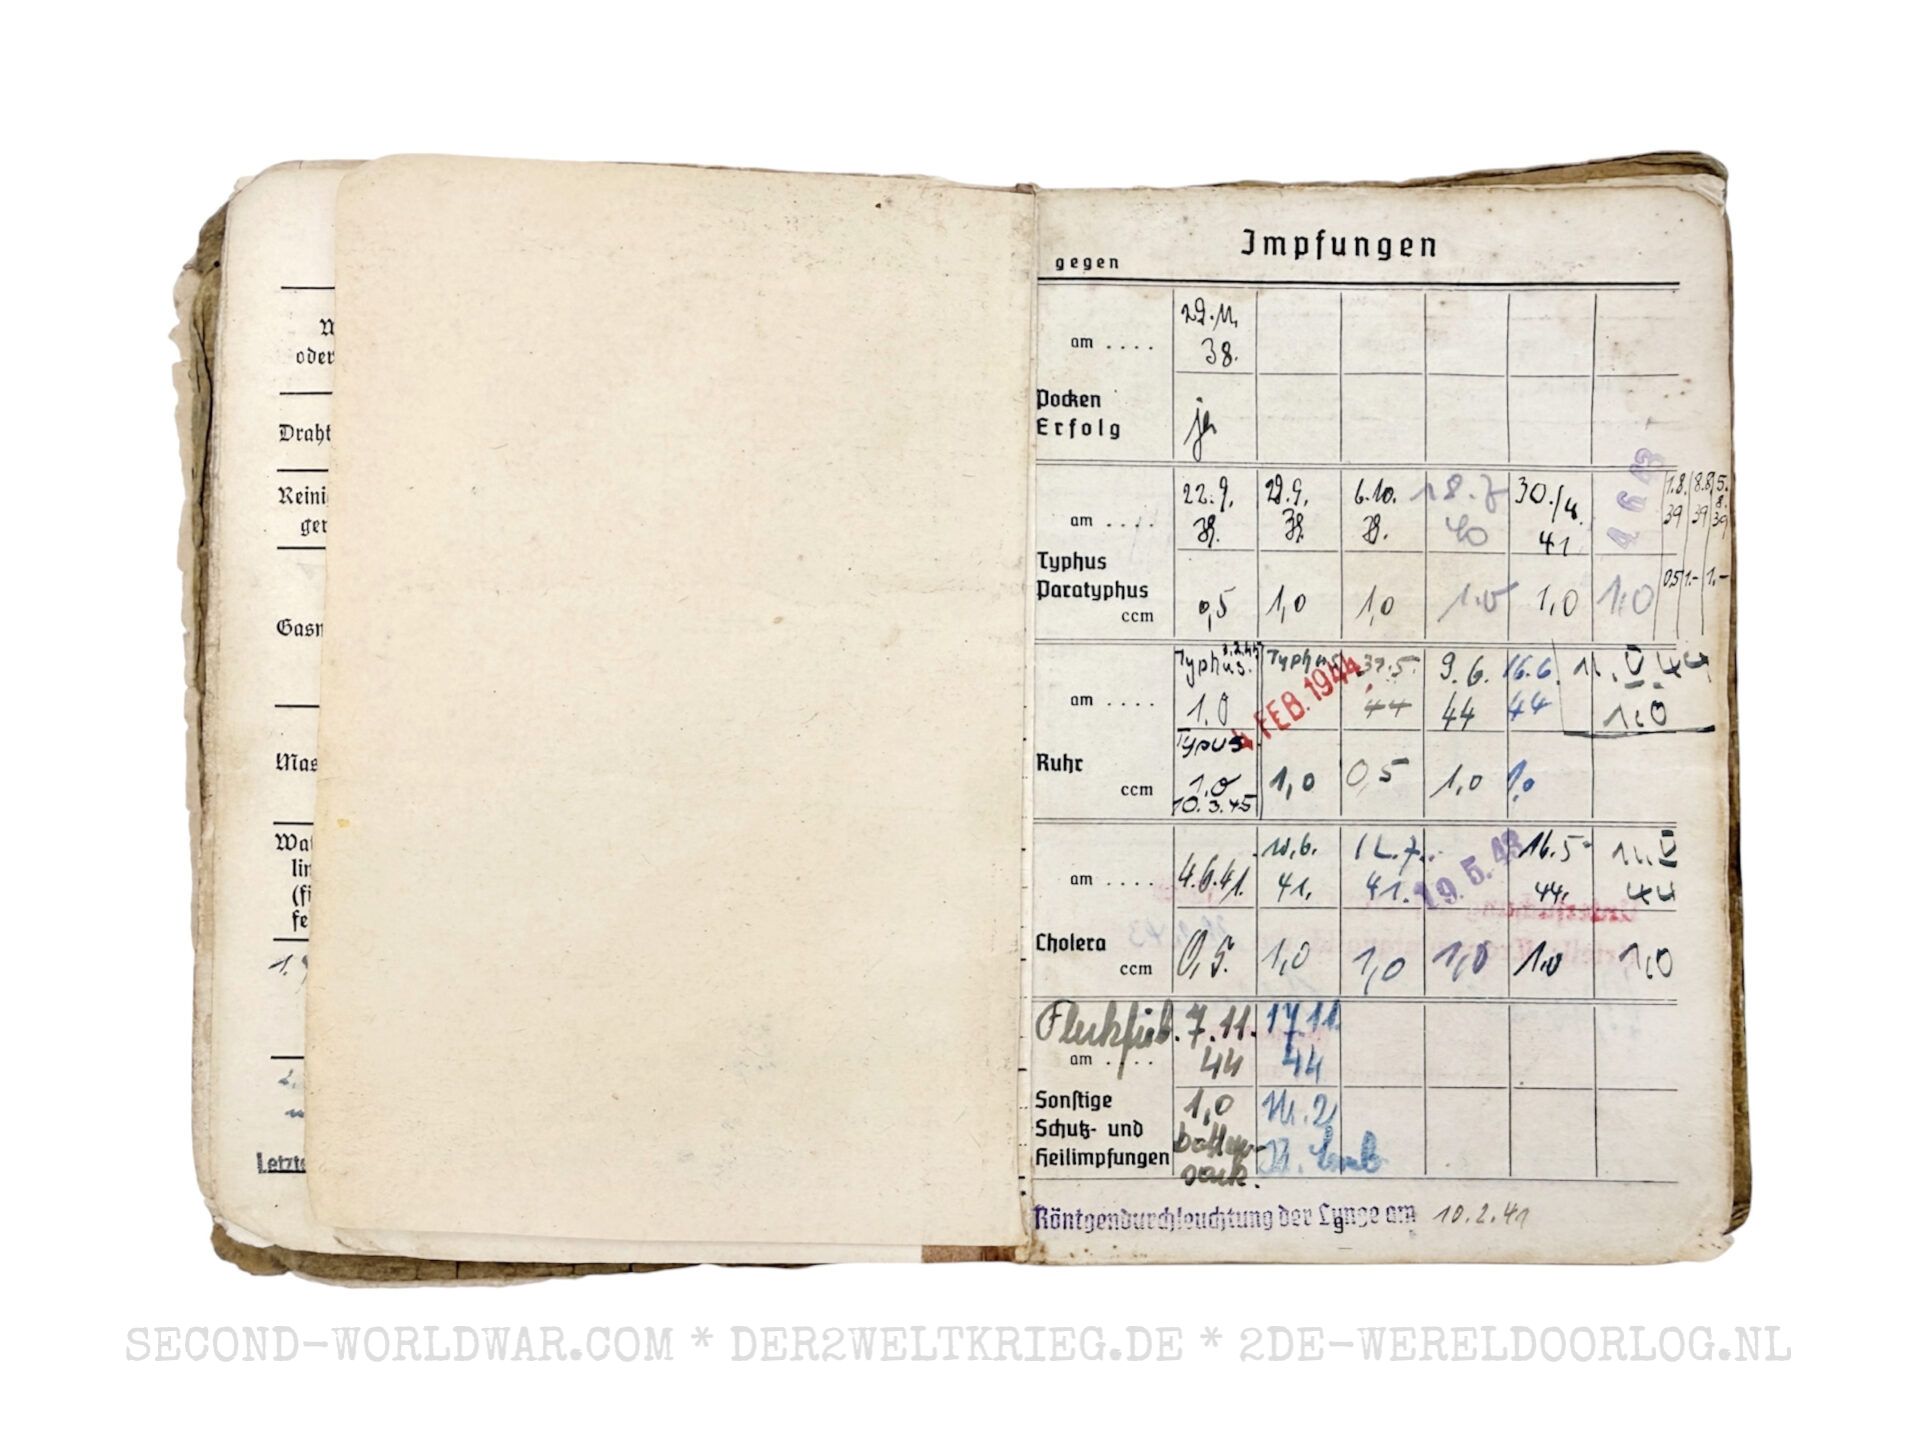 oder
Draht
Reini
ger
Gasm
Mas
lin
fe
Letzte
Impfungen
gegen
29.11.
am ....
38.
Pocken
Erfolg
ja
22.9. 29.9. 6.10. 18.7 30./4. 1.8. 8.8. 15.8.
am .... 38. 38. 38. 40 41 4 6 43 39 39 39
Typhus
Paratyphus
ccm 0,5 1,0 1,0 1.0 1,0 1,0 0,5 1.- 1,-
Typhus. Typhus 31.5. 9.6. 16.6. 11.V.44
am .... 1.0 4. FEB. 1944 44 44 44 1.0
Typus
Ruhr
ccm 1.0 1,0 0,5 1,0 1,0
10.3.45
10.6. 12.7. 16.5. 11.V
am .... 4.6.41. 41. 41. 19.5.43 44. 44
Cholera
ccm 0,5. 1,0 1,0 1,0 1,0 1,0
Fleckfieb. 7.11. 17.11.
am .... 44 44
Sonstige 1,0 Nr. 2
Schutz- und
Heilimpfungen
Röntgendurchleuchtung der Lunge am 10.2.41
SECOND-WORLDWAR.COM * DER2WELTKRIEG.DE * 2DE-WERELDOORLOG.NL